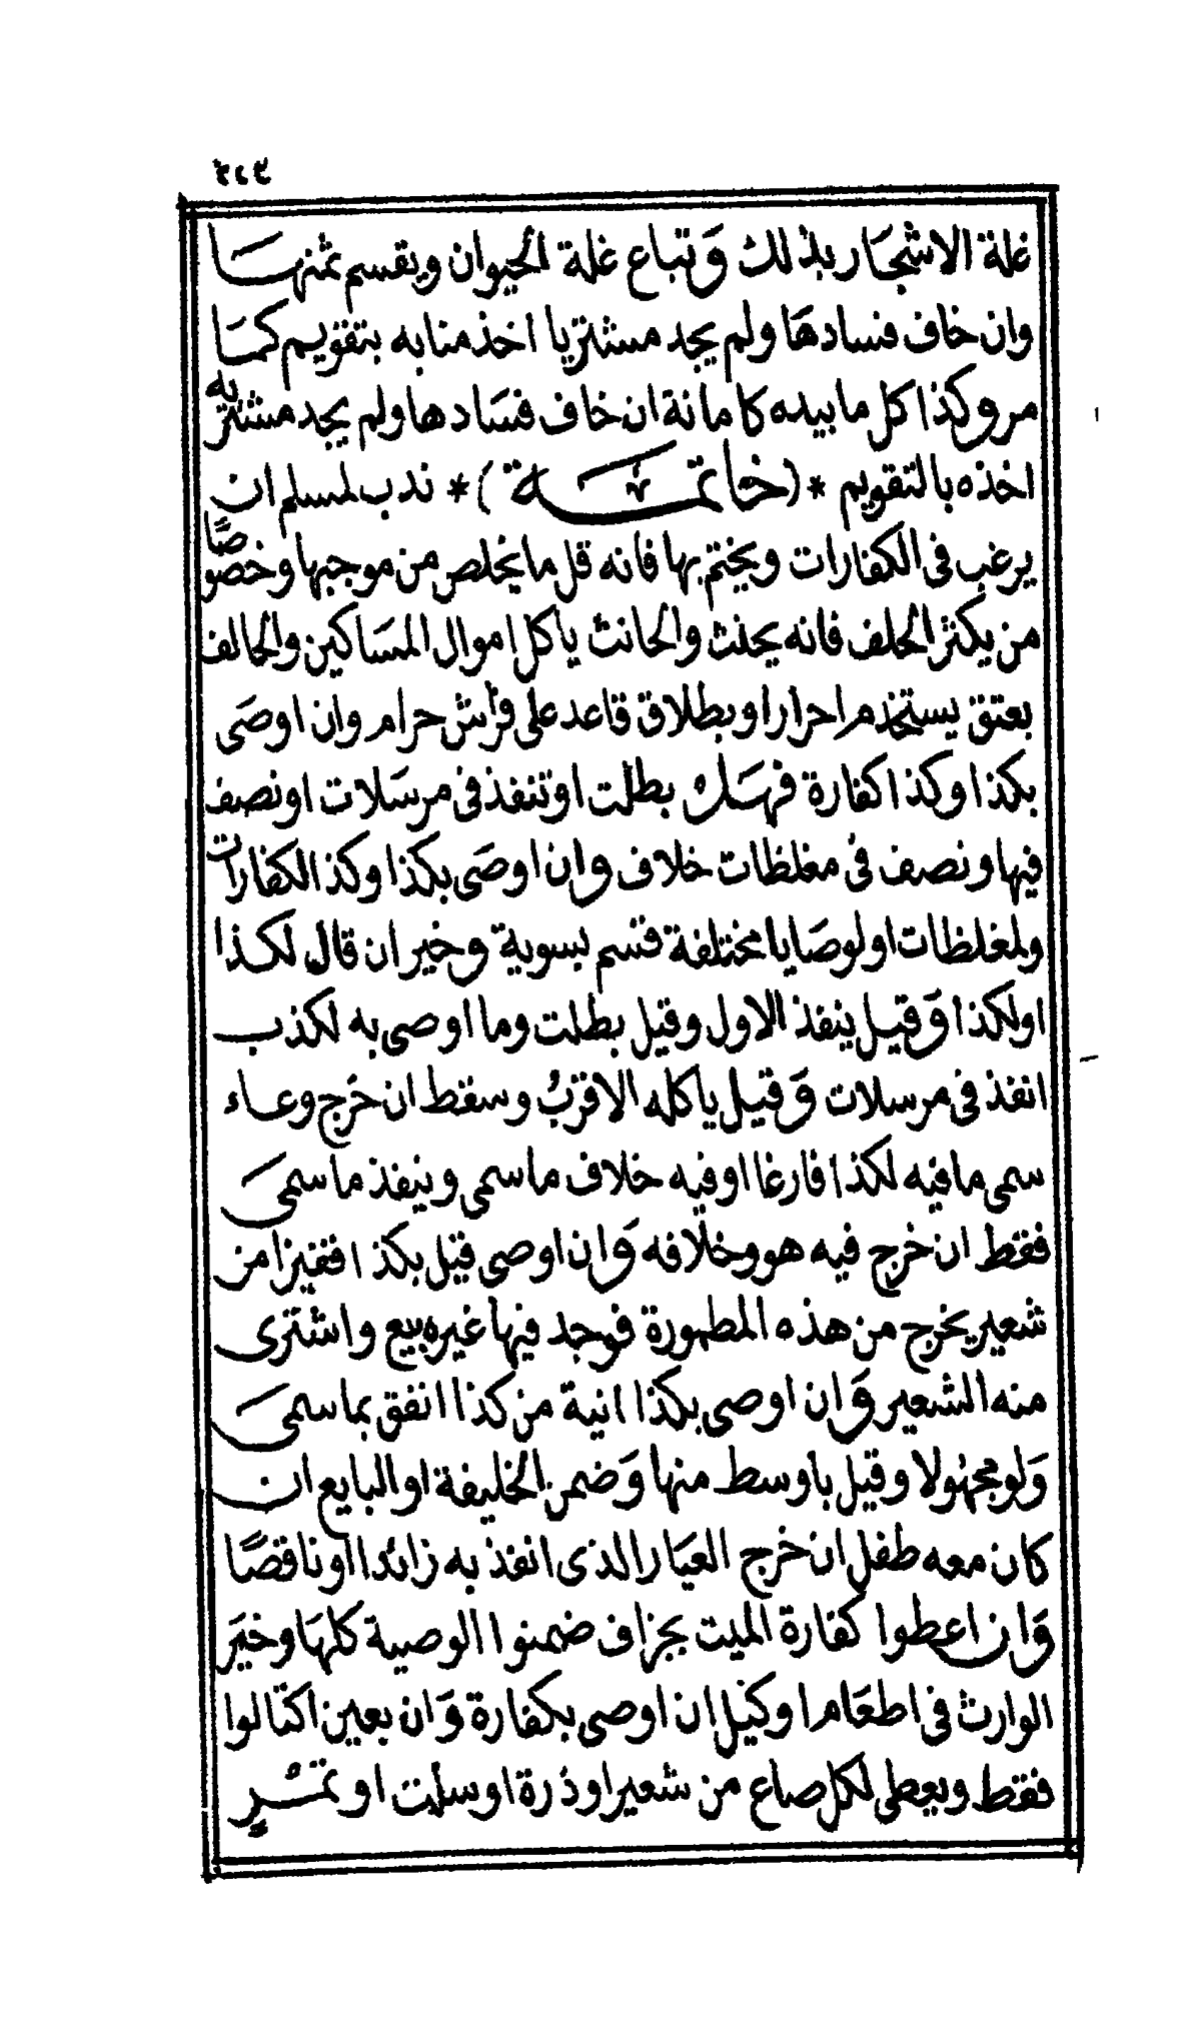 غلة الاشجار بذلك وتباع غلة الحيوان ويقسم ثمنها
وان خاف فسادها ولم يجد مشتريا اخذ منابه بتقويم كما
مر وكذا كل ما بيده كامانة ان خاف فسادها ولم يجد مشتريه
اخذه بالتقويم * (خاتمة) * ندب لمسلم ان
يرغب فى الكفارات ويختم بها فانه قل ما يخلص من موجبها وخصوصًا
من يكثر الحلف فانه يحنث والحانث ياكل اموال المساكين والحالف
بعتق يستخدم احرارا وبطلاق قاعد على فراش حرام وان اوصَى
بكذا وكذا كفارة فهَل بطلت او تنفذ فى مرسَلات او نصف
فيها ونصف فى مغلظات خلاف وان اوصَى بكذا وكذا لكفارات
ولمغلظات او لوصَايا مختلفة قسم بسوية وخير ان قال لكذا
او لكذا وَقيل ينفذ الاول وقيل بطلت وما اوصى به لكذب
انفذ فى مرسلات وَقيل ياكله الاقربُ وسقط ان خَرج وعاء
سمى ما فيه لكذا فارغا او فيه خلاف ما سمى وينفذ ما سمىَ
فقط ان خرج فيه هو وخلافه وَان اوصى قيل بكذا قفيزا من
شعير يخرج من هذه المطمورة فوجد فيها غيره بيع واشترى
منه الشعير وَان اوصى بكذا انية من كذا انفق بما سمىَ
وَلو مجهولا وقيل باوسط منها وَضمن الخليفة او البايع ان
كان معه طفل ان خرج العيَار الذى انفذ به زائدا او ناقصًا
وَان اعطوا كفارة الميت بجزاف ضمنوا الوصية كلهَا وخيَر
الوارث فى اطعَام او كيل ان اوصى بكفارة وَان بعين اكتالوا
فقط ويعطى لكل صاع من شعير او ذرة او سلت او تمْرٍ